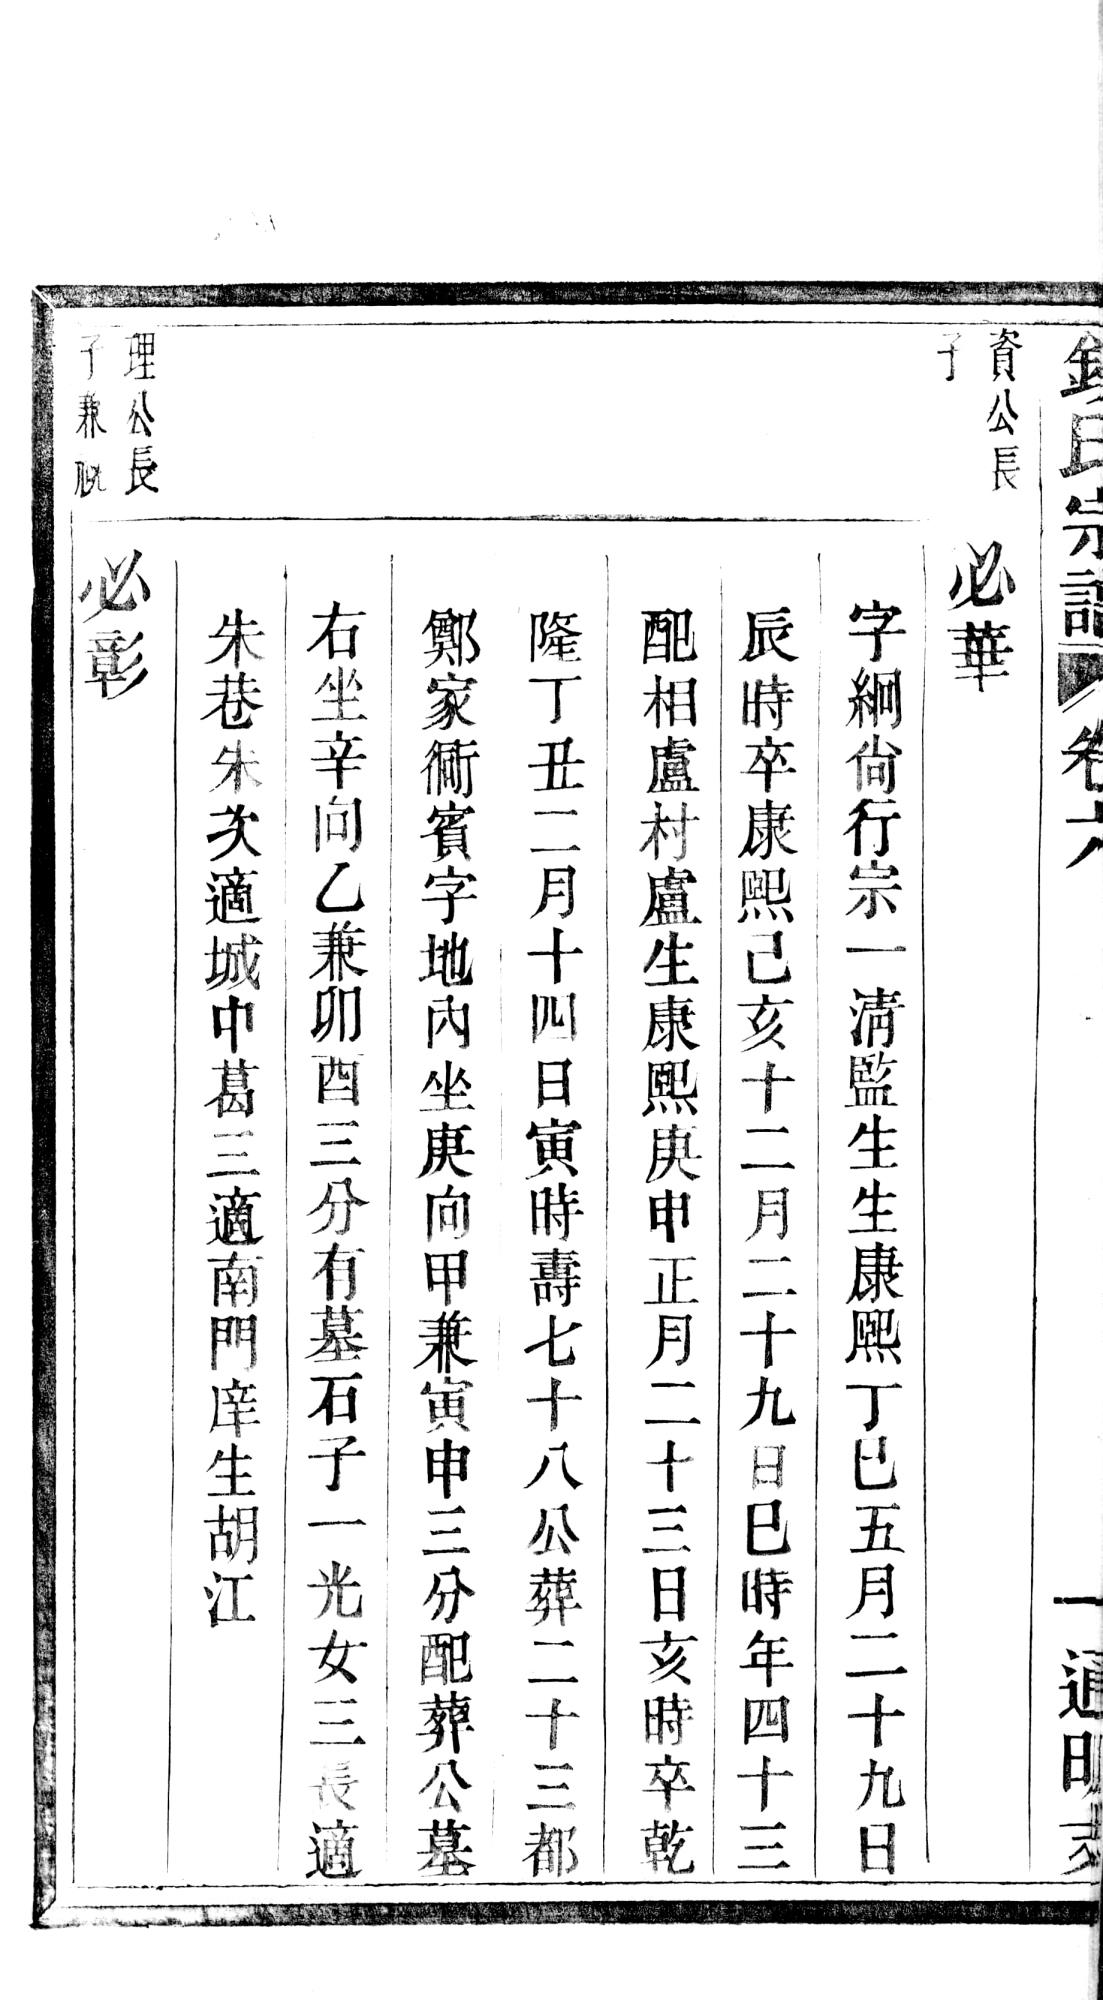 氏宗譜 卷六 一 通明
資公長
子
必華
字絅尙行宗一淸監生生康熙丁巳五月二十九日
辰時卒康熙己亥十二月二十九日巳時年四十三
配相盧村盧生康熙庚申正月二十三日亥時卒乾
隆丁丑二月十四日寅時壽七十八公葬二十三都
鄭家衕賓字地內坐庚向甲兼寅申三分配葬公墓
右坐辛向乙兼卯酉三分有墓石子一光女三長適
朱巷朱次適城中葛三適南門庠生胡江
理公長
子兼祧
必彰